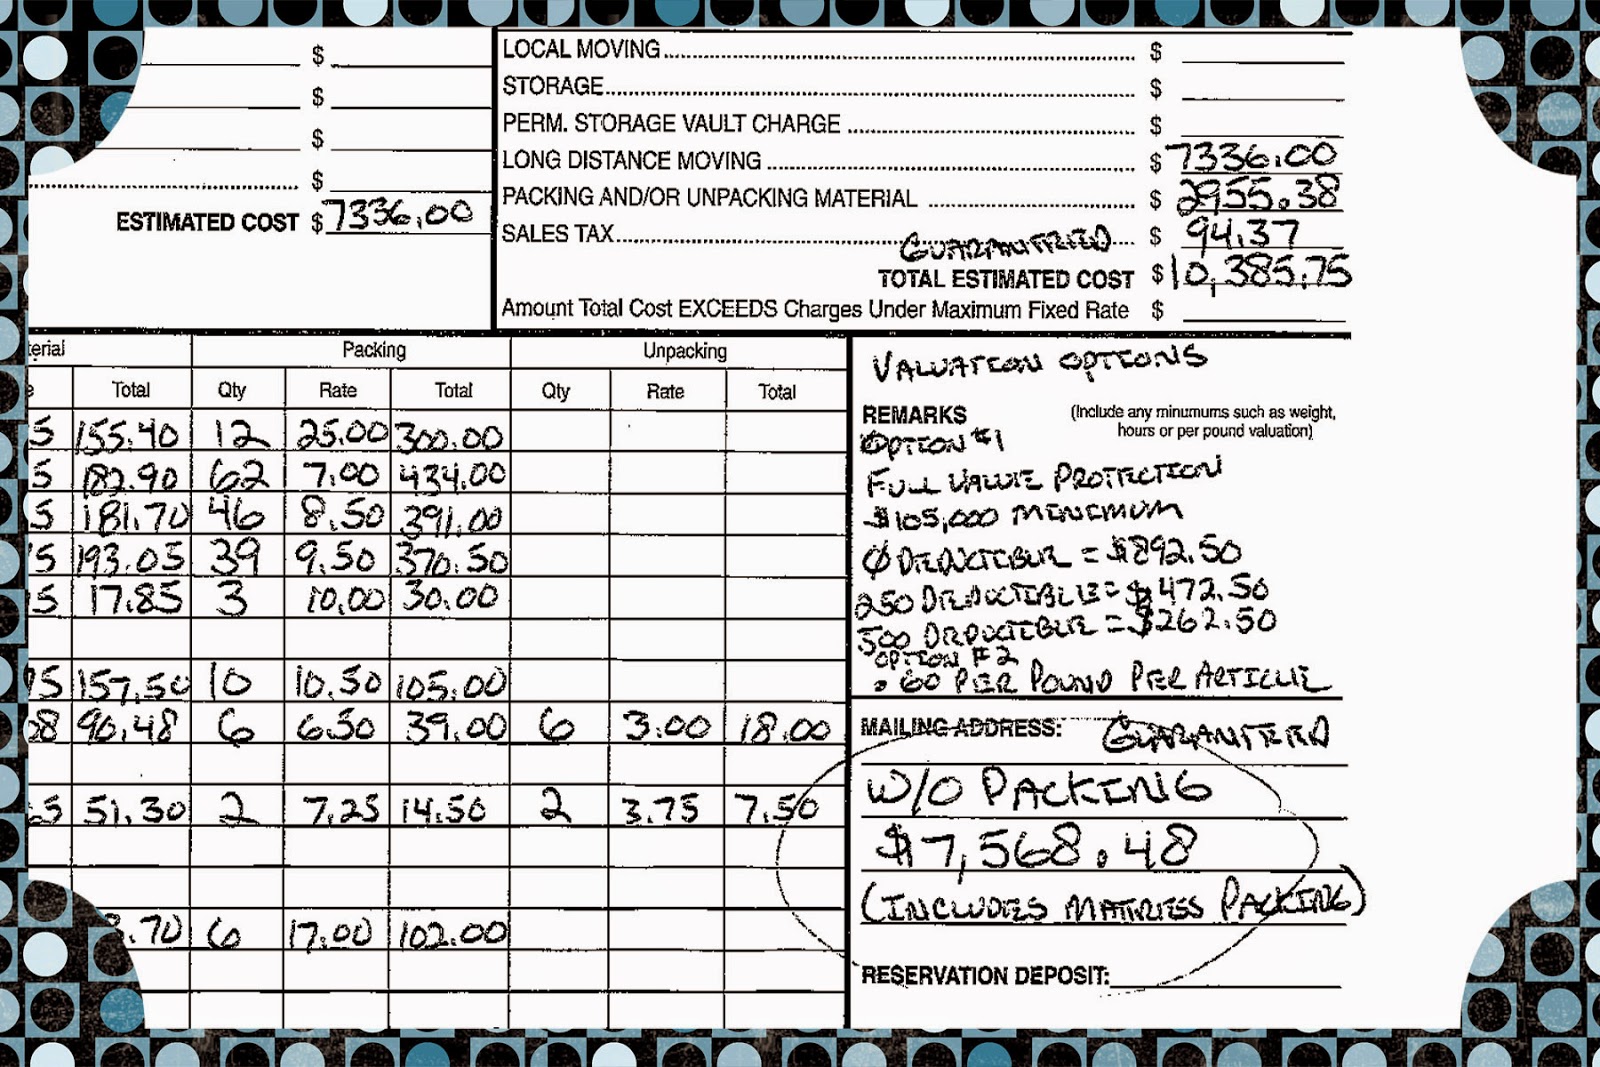 $
$
$
$
ESTIMATED COST $ 7336.00
LOCAL MOVING $
STORAGE $
PERM. STORAGE VAULT CHARGE $
LONG DISTANCE MOVING $ 7336.00
PACKING AND/OR UNPACKING MATERIAL $ 2955.38
SALES TAX $ 94.37
GUARANTEED
TOTAL ESTIMATED COST $ 10,385.75
Amount Total Cost EXCEEDS Charges Under Maximum Fixed Rate $
erial Packing Unpacking
e Total Qty Rate Total Qty Rate Total
5 155.40 12 25.00 300.00
5 182.90 62 7.00 434.00
5 181.70 46 8.50 391.00
5 193.05 39 9.50 370.50
5 17.85 3 10.00 30.00
5 157.50 10 10.50 105.00
28 90.48 6 6.50 39.00 6 3.00 18.00
5 51.30 2 7.25 14.50 2 3.75 7.50
.70 6 17.00 102.00
VALUATION OPTIONS
REMARKS (Include any minumums such as weight,
hours or per pound valuation)
OPTION #1
FULL VALUE PROTECTION
$105,000 MINIMUM
0 DEDUCTIBLE = $892.50
250 DEDUCTIBLE = $472.50
500 DEDUCTIBLE = $262.50
OPTION #2
.60 PER POUND PER ARTICLE
MAILING ADDRESS: GUARANTEED
W/O PACKING
$7,568.48
(INCLUDES MATTRESS PACKING)
RESERVATION DEPOSIT: